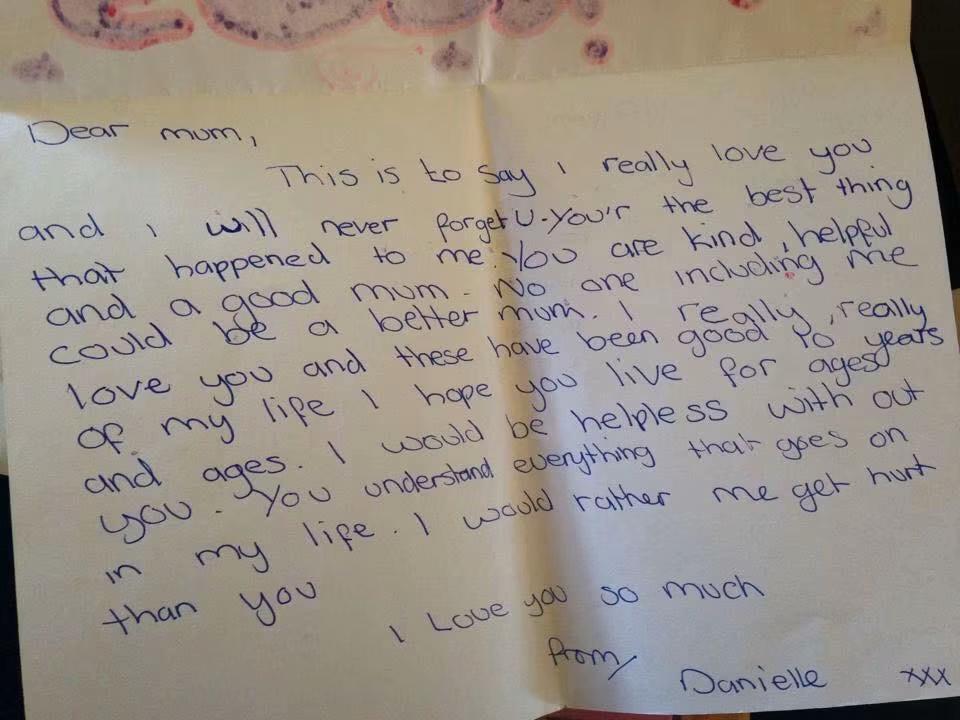 Dear mum,
This is to say I really love you
and I will never forget U. You'r the best thing
that happened to me. You are kind, helpful
and a good mum. No one including me
could be a better mum. I really, really
love you and these have been good 10 years
of my life I hope you live for ages
and ages. I would be helpless with out
you. You understand everything that goes on
in my life. I would rather me get hurt
than you
I Love you so much
from
Danielle xxx